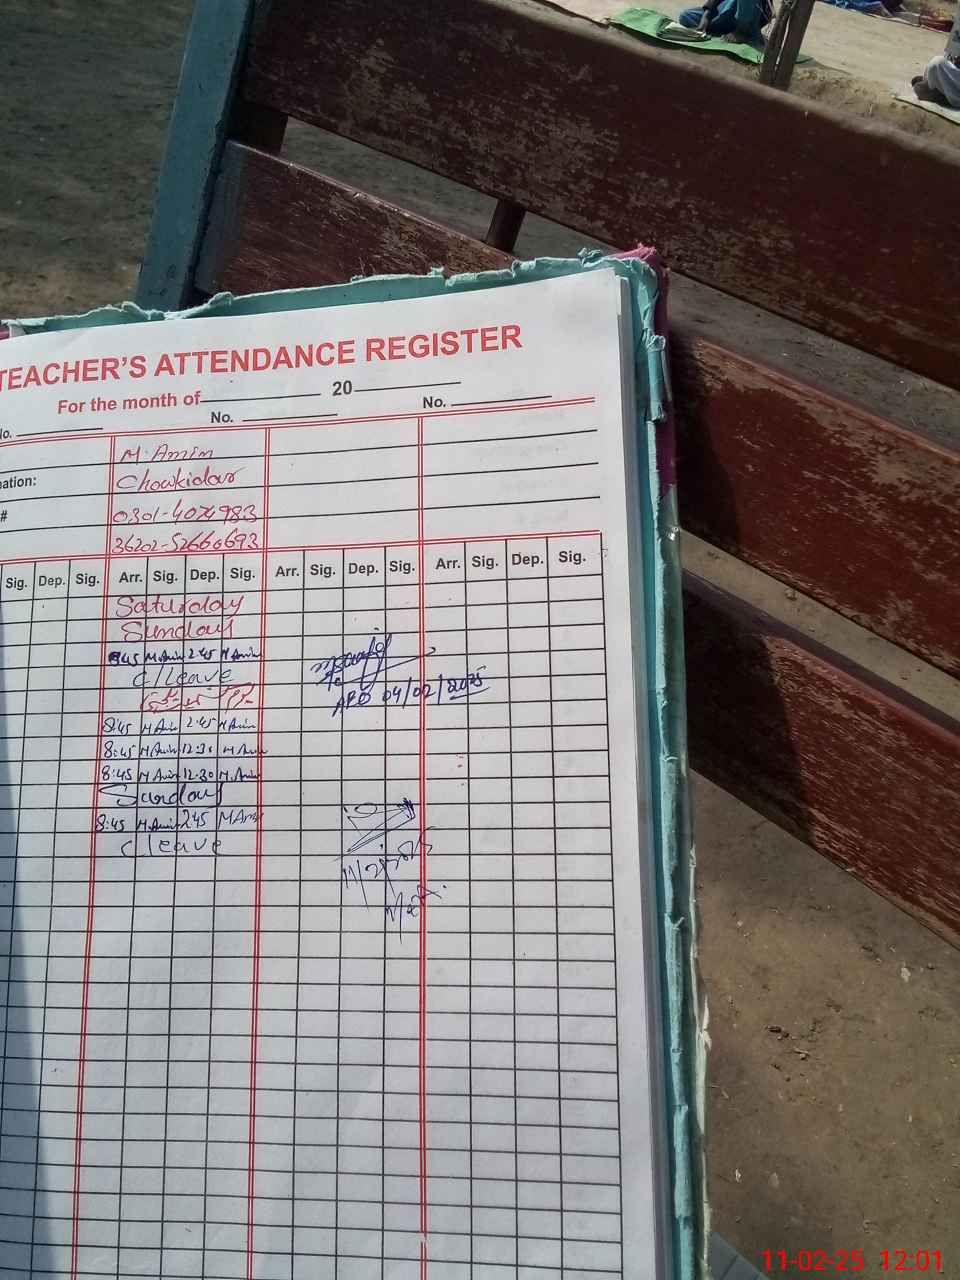 TEACHER'S ATTENDANCE REGISTER
For the month of 20
No. No. No.
M. Amin
ation: Chowkidar
#
36202-52660693
Sig. Dep. Sig. Arr. Sig. Dep. Sig. Arr. Sig. Dep. Sig. Arr. Sig. Dep. Sig.
Saturday
Sunday
8:45 M Amin 2:45 M Amin
C/leave
8:45 M Amin 2:45 M Amin
8:45 M Amin 12:30 M Amin
8:45 M Amin 12:30 M. Amin
Sunday
8:45 M. Amin 2:45 M Amin
C leave
04/02/2025
11-02-25 12:01